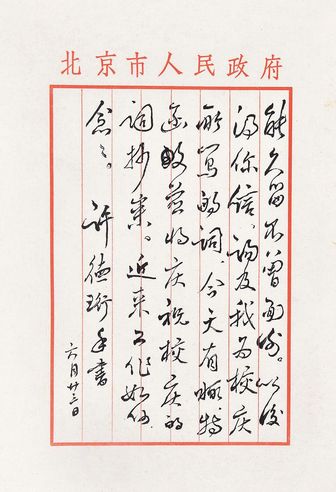 北京市人民政府
能久留不曾面谈。以后
得你信,询及我为校庆
所写的词,今天有暇,特
兹将庆祝校庆的
词抄。近来工作如何
念之。许德珩手书
六月廿三日